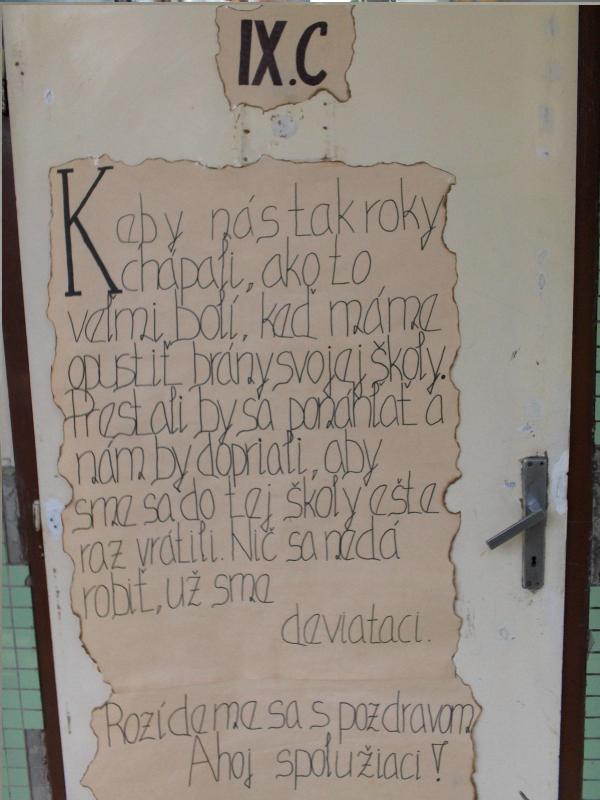 IX.C
Keby nás tak roky
chápali, ako to
veľmi bolí, keď máme
opustiť brány svojej školy.
Prestali by sa ponáhľať a
nám by dopriali, aby
sme sa do tej školy ešte
raz vrátili. Nič sa nedá
robiť, už sme
deviataci.
Rozídeme sa s pozdravom
Ahoj spolužiaci!